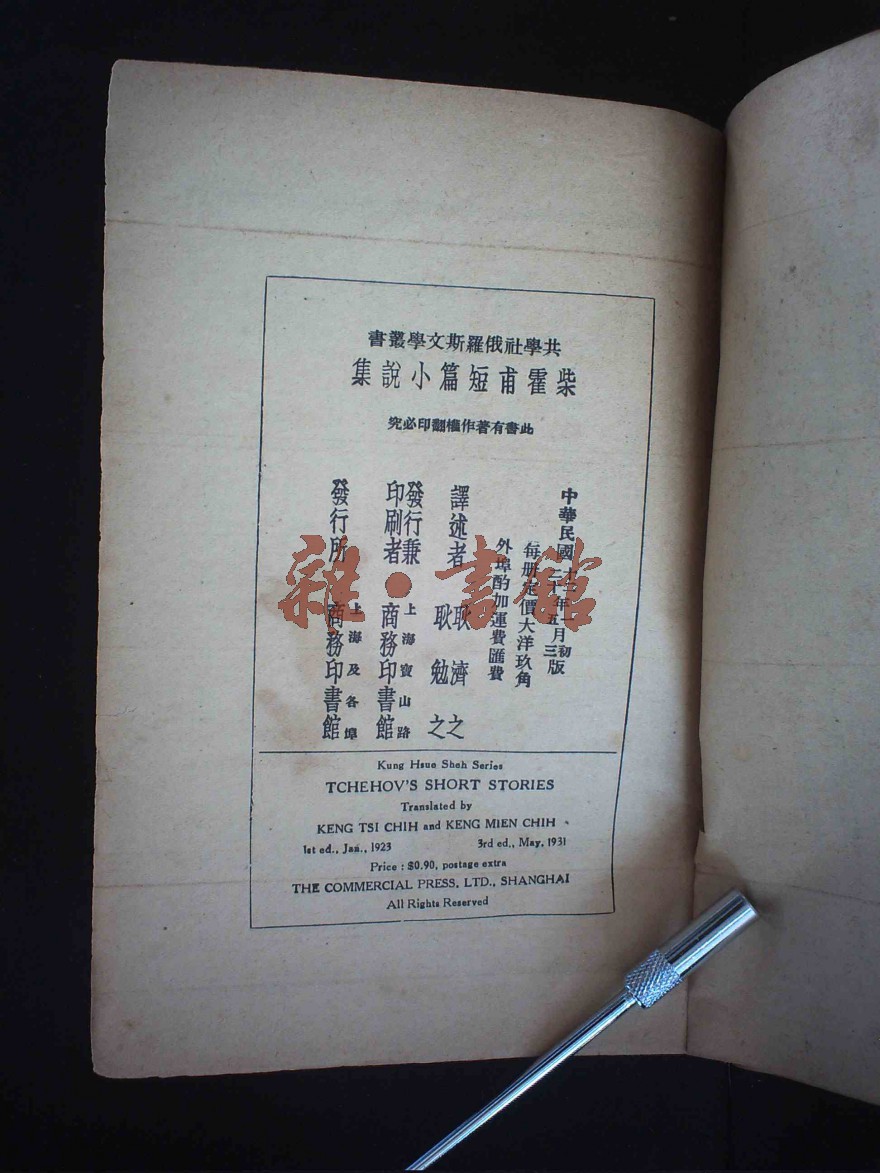 共學社俄羅斯文學叢書
柴霍甫短篇小說集
此書有著作權翻印必究
中華民國
十二年一月初版
二十年五月三版
每册定價大洋玖角
外埠酌加運費匯費
譯述者 耿濟之 耿勉之
發行兼印刷者 上海寶山路 商務印書館
發行所 上海及各埠 商務印書館
Kung Hsue Sheh Series
TCHEHOV'S SHORT STORIES
Translated by
KENG TSI CHIH and KENG MIEN CHIH
1st ed., Jan., 1923 3rd ed., May, 1931
Price : $0.90, postage extra
THE COMMERCIAL PRESS, LTD., SHANGHAI
All Rights Reserved
雜·書館